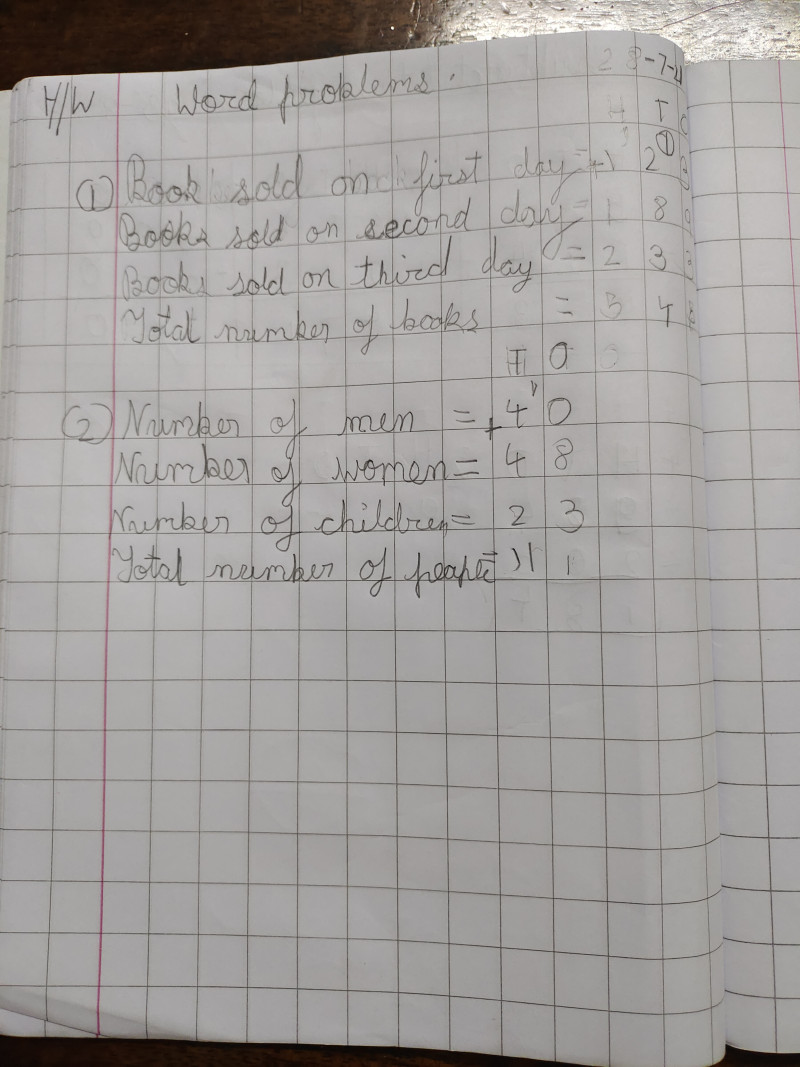 28-7-21
H/W Word problems.
H T O
① Book sold on first day = + 1 2
Books sold on second day = 1 8
Books sold on third day = 2 3
Total number of books = 5 4
T O
② Number of men = + 4 0
Number of women = 4 8
Number of children = 2 3
Total number of people = 11 1